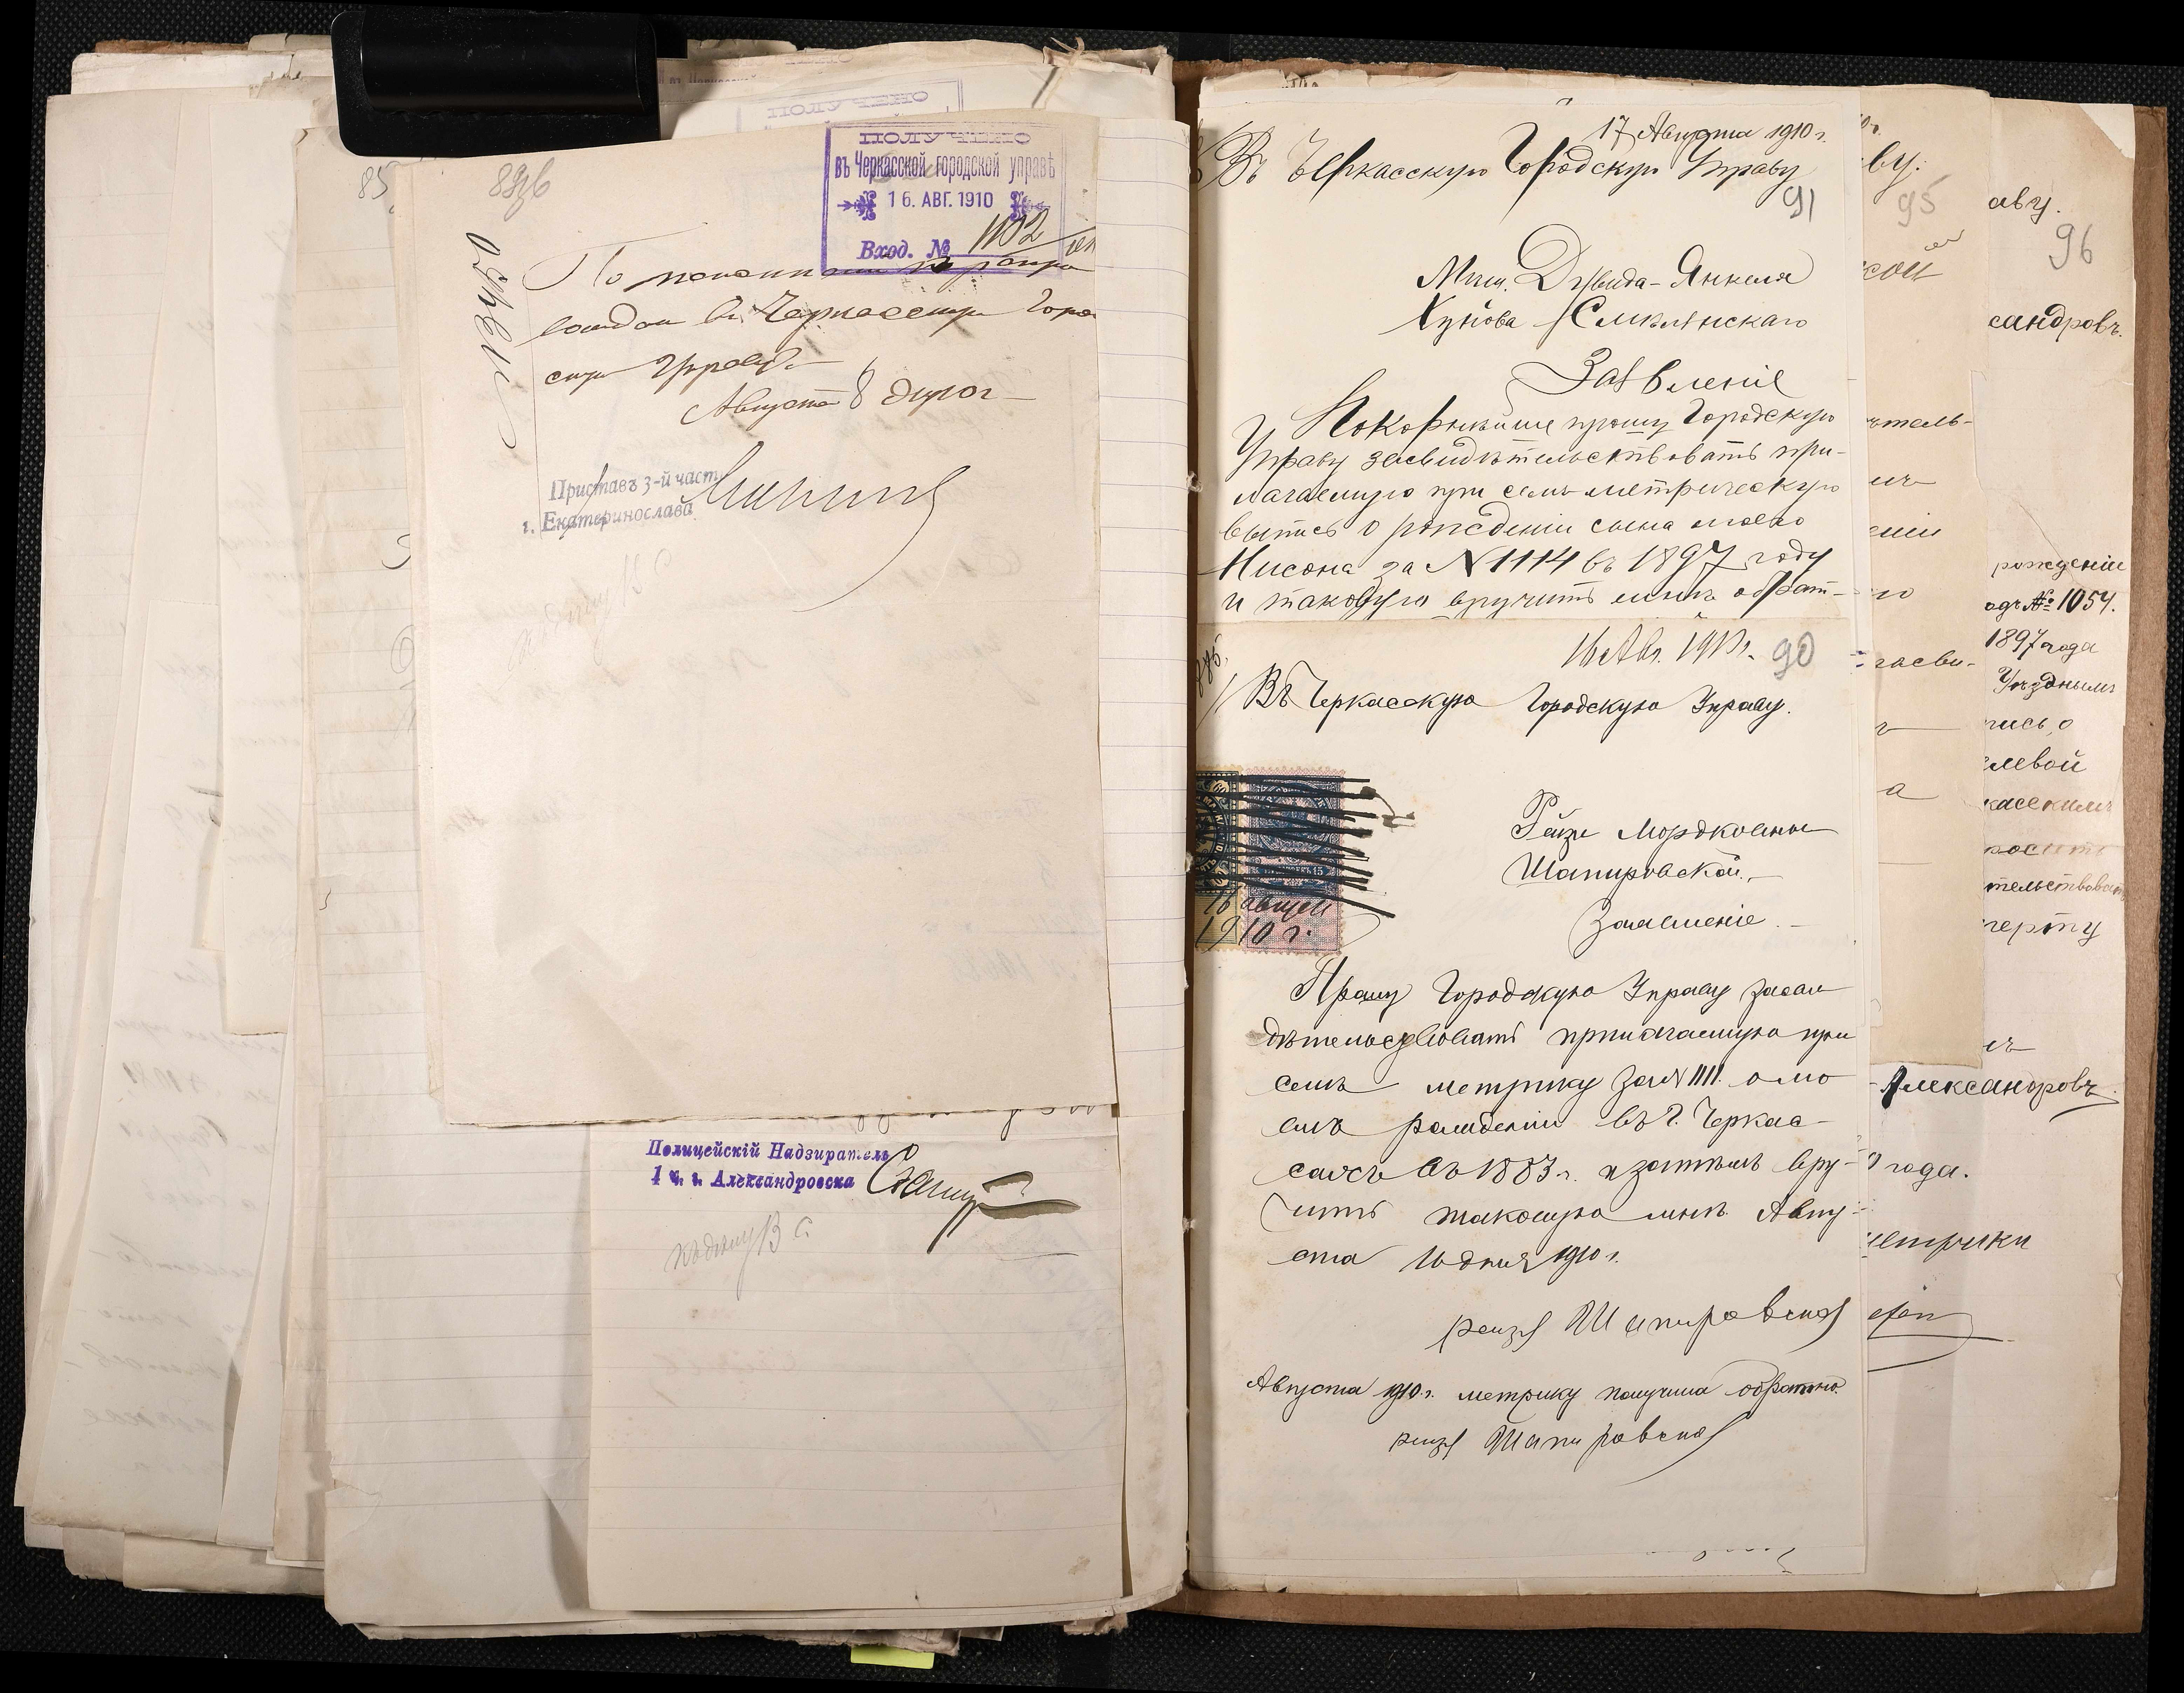 85
88об
ПОЛУЧЕНО
въ Черкасской городской управѣ
16. АВГ. 1910
Вход. № 1102
По
въ Черкасскую Горо
скую Управу
Августа 8 дня 1910 г
Приставъ 3-й част
г. Екатеринослава
Полицейскій Надзиратель
1 ч. г. Александровска
къ дѣлу
17 Августа 1910 г.
Въ Черкасскую Городскую Управу
91
Мѣщ. Давида-Янкеля
Хунова Смилянскаго
Заявленіе
Покорнѣйше прошу Городскую
Управу засвидѣтельствовать при-
лагаемую при семъ метрическую
выпись о рожденіи сына моего
Нисона за № 1114 въ 1897 году
и таковую вручить мнѣ обрат-
16 Авг. 1910 г. 90
Въ Черкасскую Городскую Управу.
Рейзи Мордковны
Шапировской
Заявленіе
16 августа
1910 г.
Прошу Городскую Управу засви
дѣтельствовать прилагаемую при
семъ метрику за № 1111. о мо
емъ рожденіи въ г. Черкас-
сахъ въ 1883 г. и затѣмъ вру-
чить таковую мнѣ. Авгу-
ста 16 дня 1910 г.
рейзя Шапировская
Августа 1910 г. метрику получила обратно.
рейзя Шапировская
ву.
95
ской
тель-
засви-
а
Александровъ
года.
метрики
аву.
96
сандровъ.
рожденіи
одъ № 1054.
1897 года
Уѣзднымъ
пись, о
левой
касскимъ
тельствовать